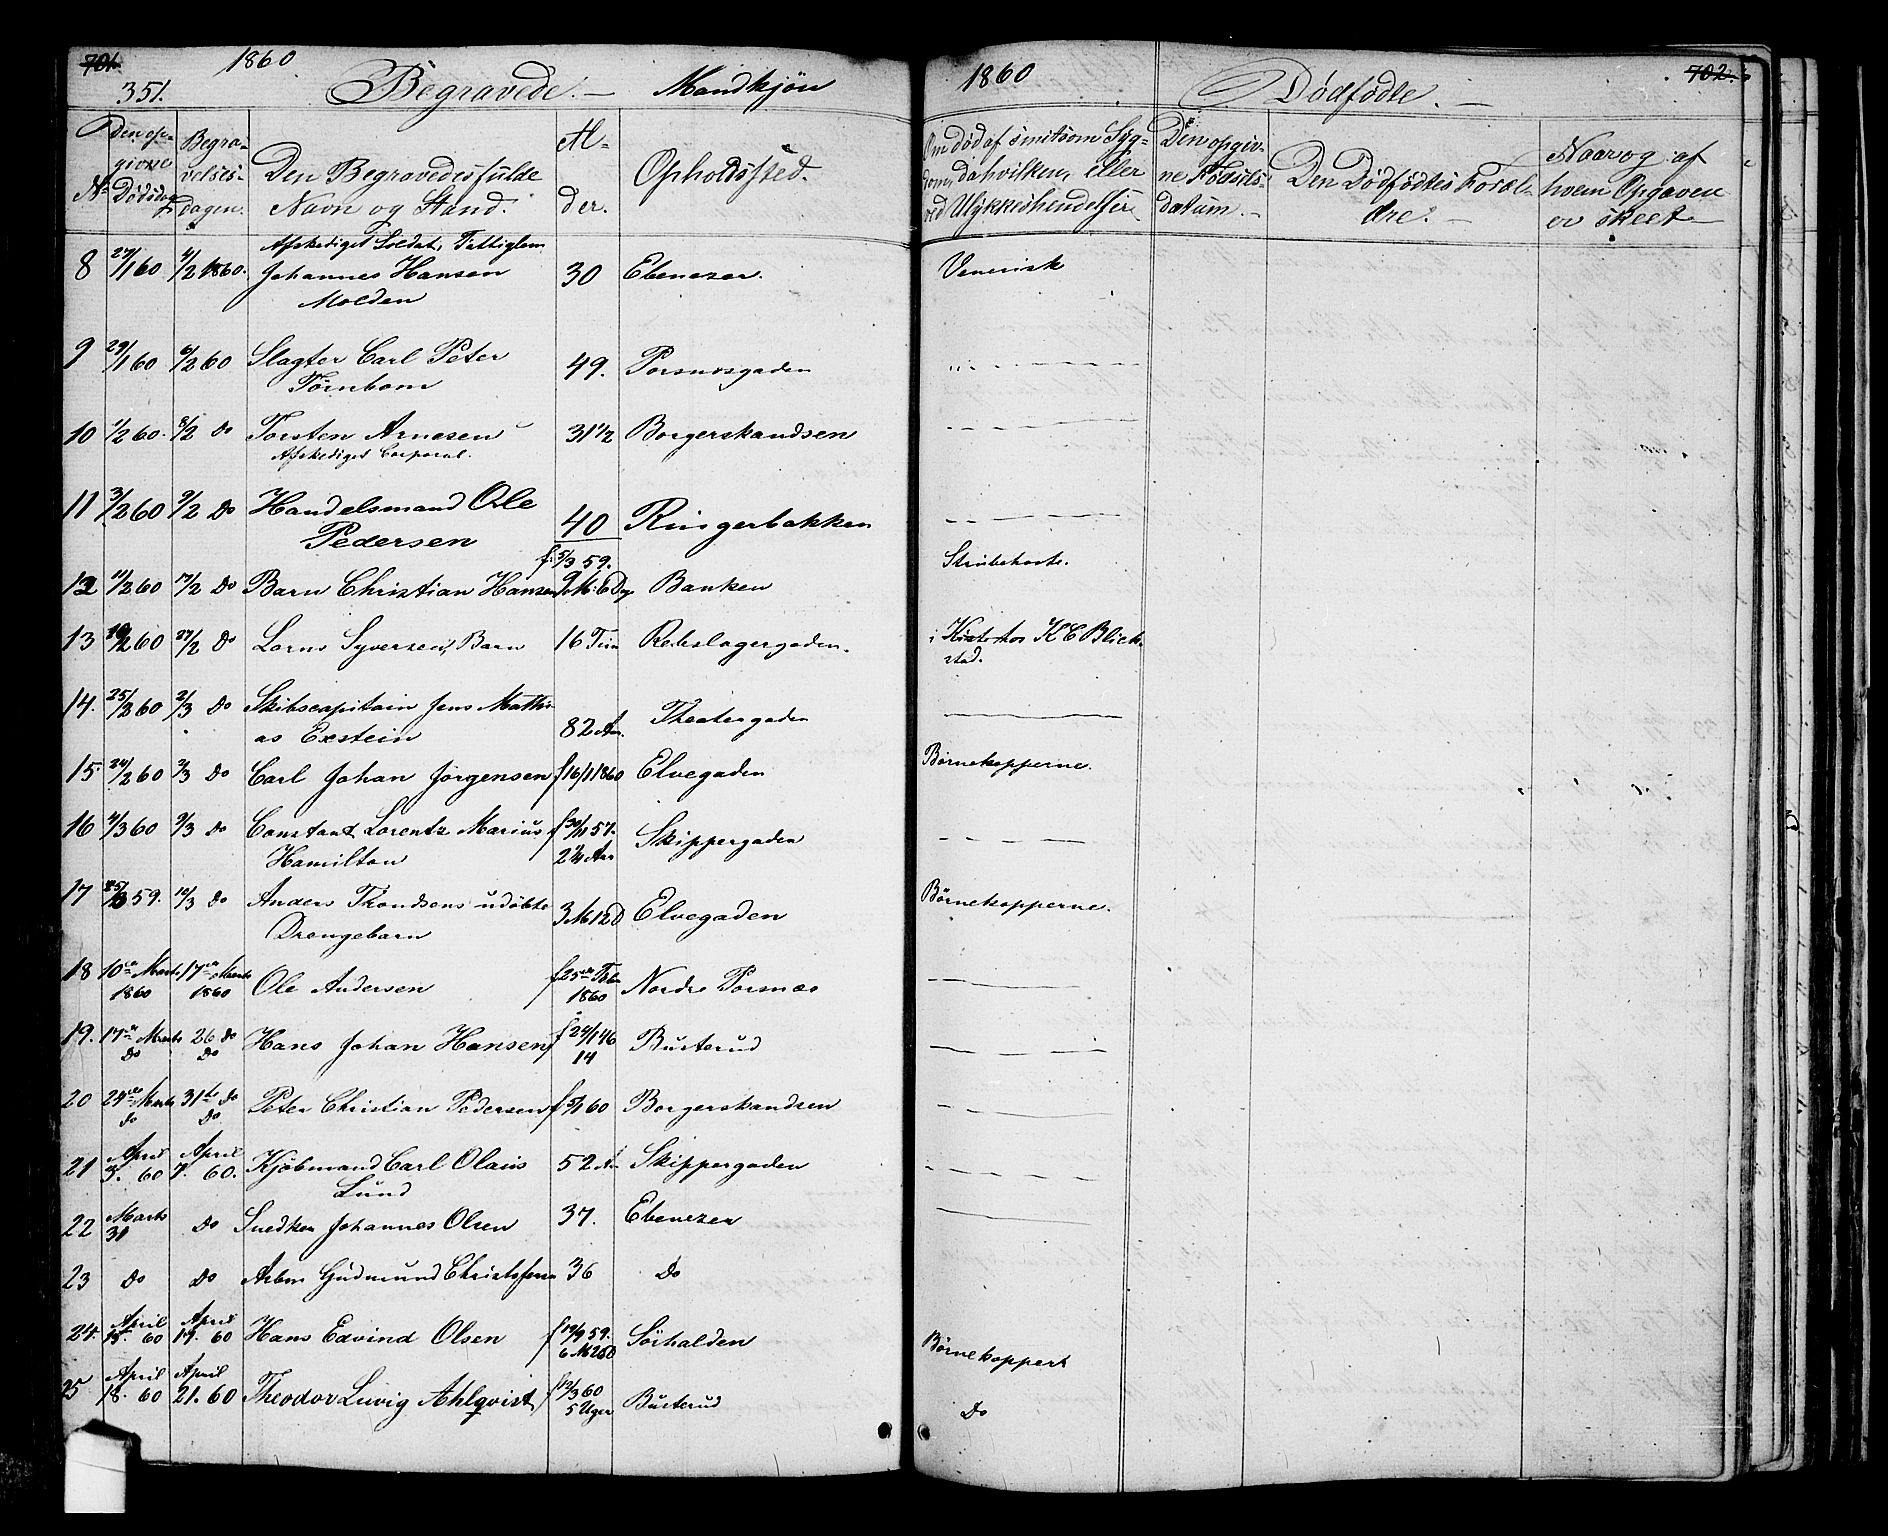 701.
1860
351.
Begravede. — Mandkjön
Den op-
givne
No Dödsdag
Begra-
velses-
dagen.
Den Begravedes fulde
Navn og Stand.
Al-
der.
Opholdssted.
Afskediget Soldat, Fattiglem
8 27/1 60 4/2 1860. Johannes Hansen 30 Ebenezer.
Molden
9 29/1 60 6/2 60 Slagter Carl Peter 49. Porsnesgaden
Törnbom
10 1/2 60. 8/2 Do Torsten Arnesen 31 1/2 Borgerskandsen
Afskediget Corporal.
11 3/2 60 9/2 Do Handelsmand Ole 40 Ringerbakken
Pedersen
f. 5/3 59.
12 11/2 60 17/2 Do Barn Christian Hansen 9 M: 6 Dg Banken
13 60 27/2 Do Lorns Syversens Barn 16 Tim Rebslagergaden.
14. 25/2 60 2/3 Do Skibscapitain Jens Mathi-
as Exstein 82 Aar. Theatergaden
15. 24/2 60 3/3 Do Carl Johan Jörgensen f 16/1 1860 Elvegaden
16 4/3 60 9/3 Do Constant Lorentz Marius f 30/11 57. Skippergaden
Hamilton 2 1/4 Aar
17 59. 10/3 Do Anders Trondsens udöbte 3 M 12 D Elvegaden
Drengebarn
18 10de Marts 17de Marts Ole Andersen f 25de Feb. Nordre Porsnæs
1860 1860 1860
19. 17de Marts 26 Do Hans Johan Hansen f 24/1 46 Busterud
Do Do 14
20 24de Marts 31te Do Peter Christian Pedersen f 5/1 60 Borgerskandsen
Do Do
April April
21 3. 60 7. 60. Kjöbmand Carl Olaus 52 A Skippergaden
Lund
22 Marts Do Snedker Johannes Olsen 37. Ebenezer
31
23 Do Do Arbm Gudmund Christofersen 36 Do
April April
24. 15. 60 19. 60 Hans Edvind Olsen f 19/9 59. Sörhalden
6 M 26 D
April April
25 18. 60 21. 60 Theodor Luvig Ahlqvist f 12/3 60 Busterud
5 Uger
1860
Dödfödte. —
702.
Om död af smitsom Syg-
dom, da hvilken, eller
ved Ulykkeshendelser
Den opgiv-
ne Födsels-
datum. —
Den Dödfödtes Foræl-
dre. —
Naar og af
hvem Opgaven
er skeet —
Venerisk
Strubehoste.
i Kiste hos K C Blich-
stad.
Börnekopperne.
Börnekopperne.
Börnekopper
Do